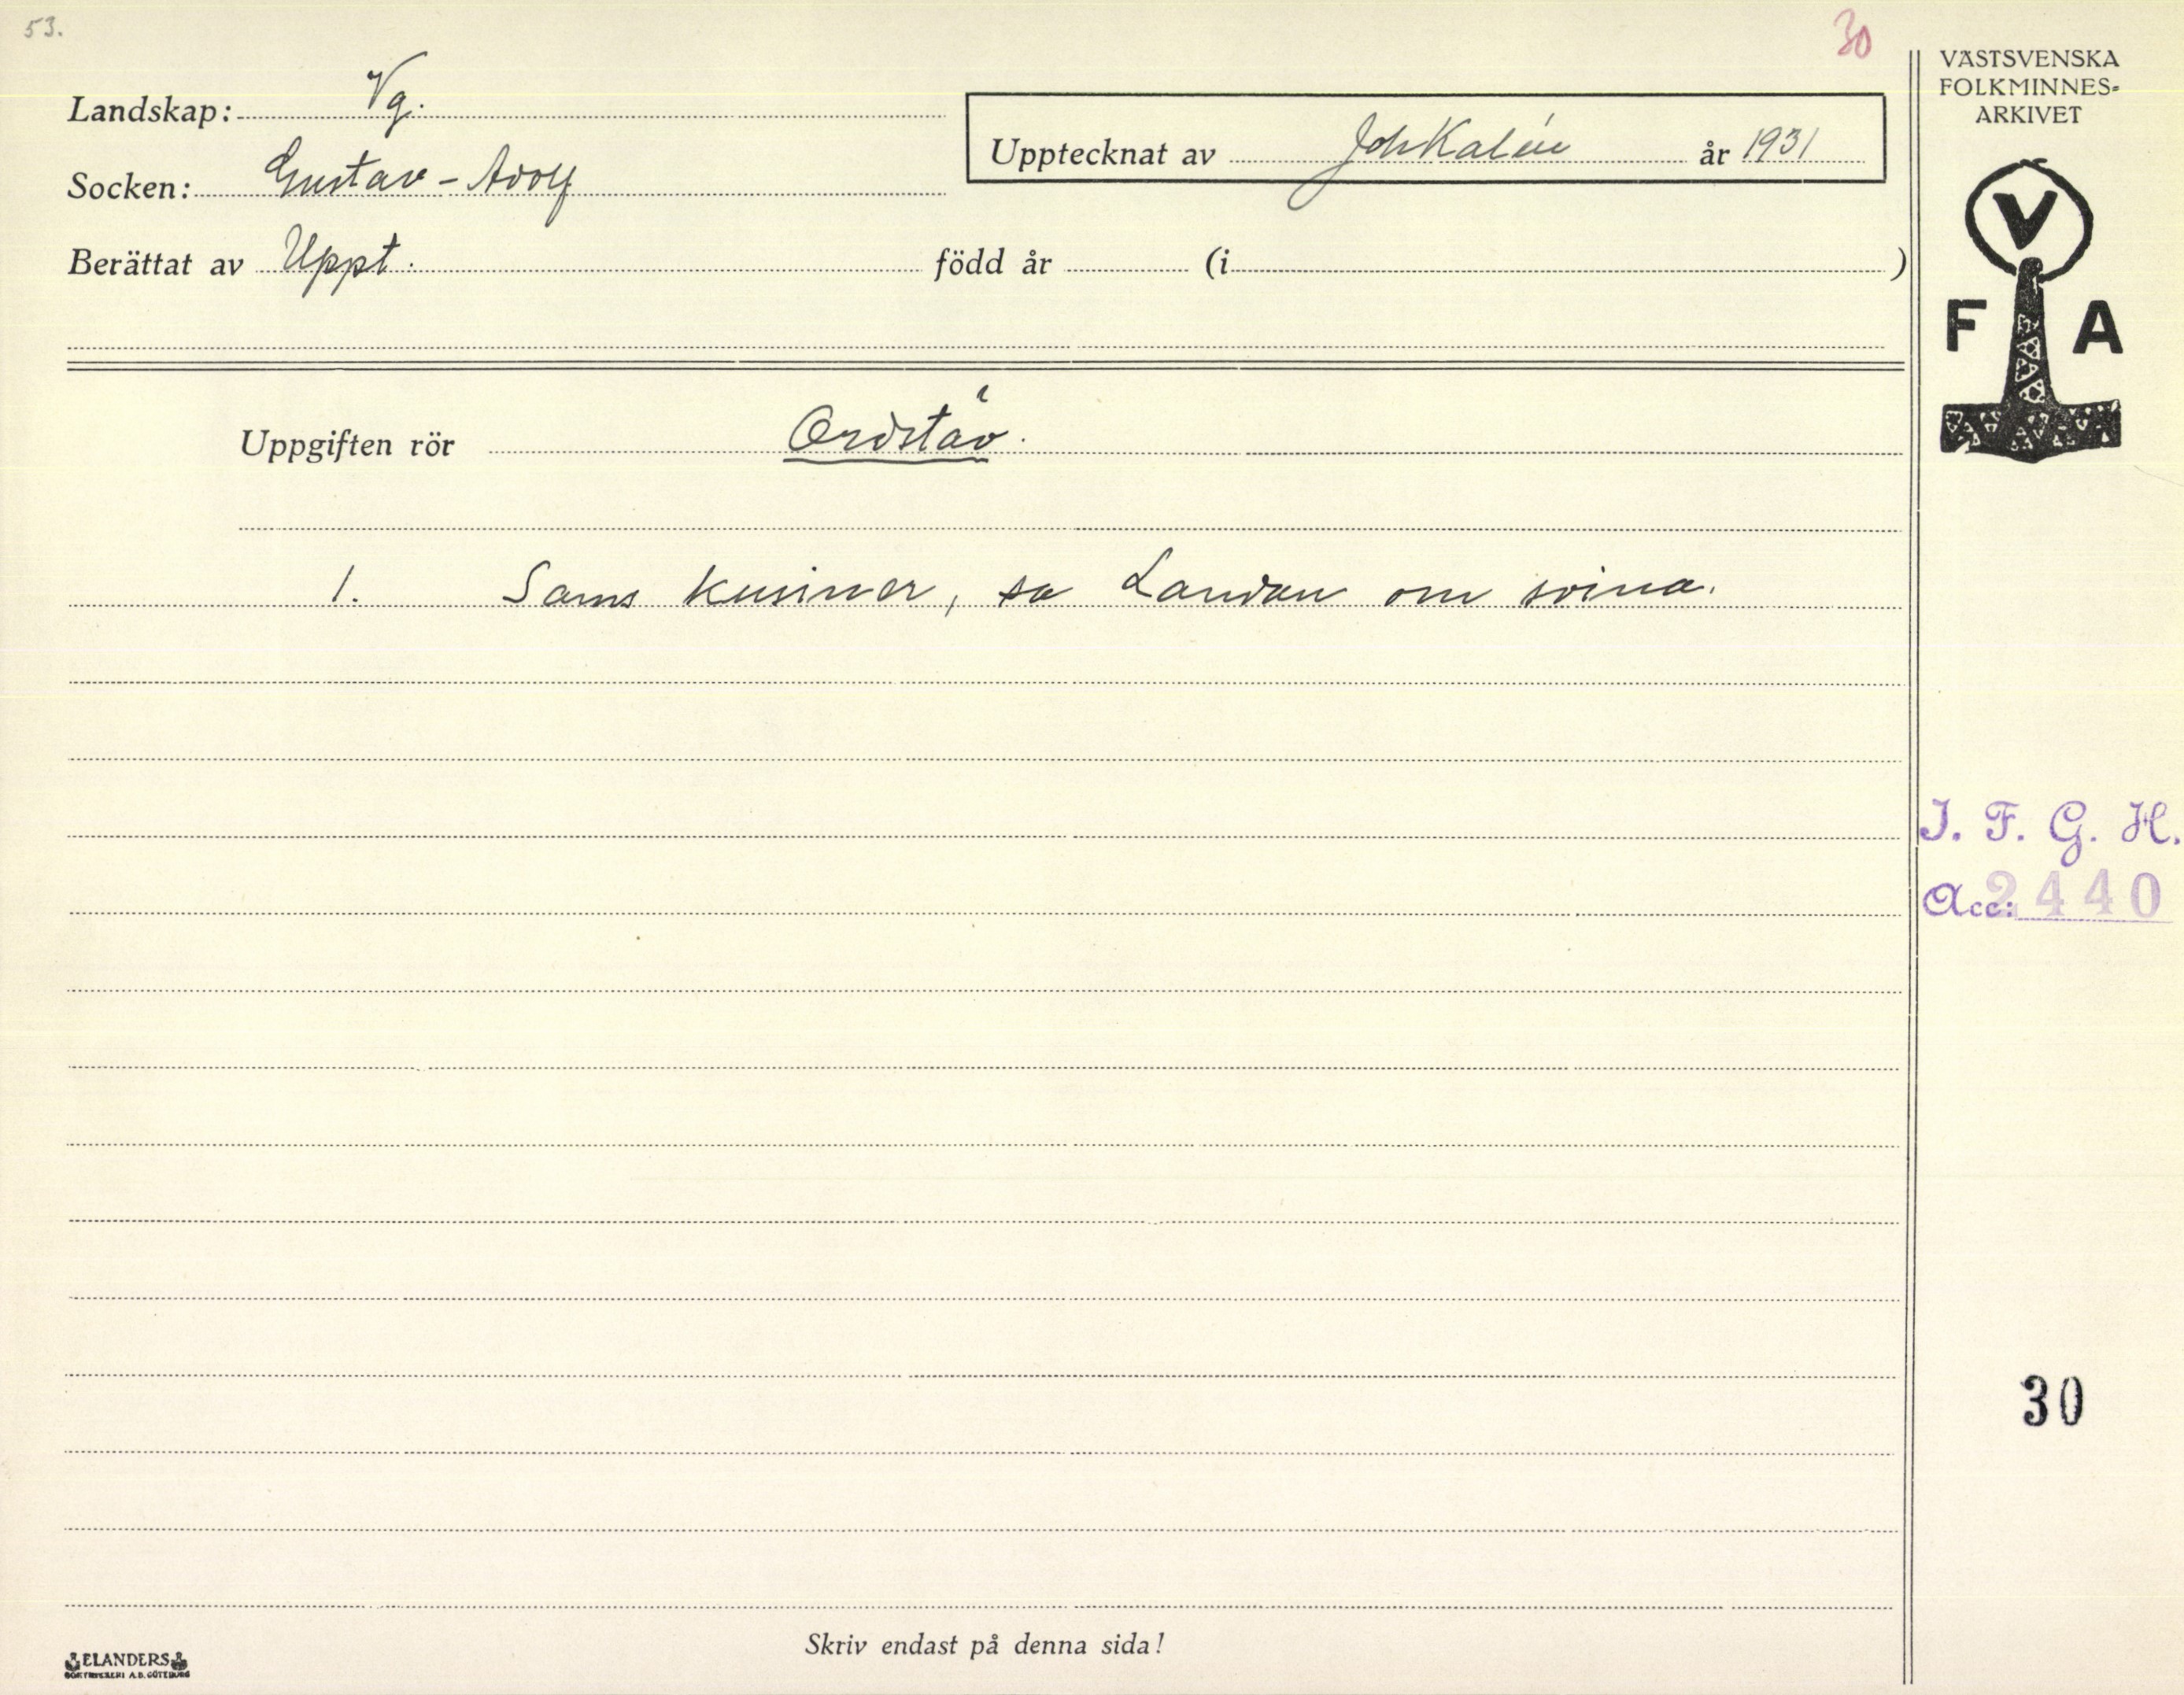 53.
30
VÄSTSVENSKA
FOLKMINNES-
ARKIVET
Landskap: Vg.
Upptecknat av Joh Kalén år 1931
Socken: Gustav-Adolf
Berättat av Uppt. född år (i )
V
F A
Uppgiften rör Ordstäv.
1. Sams kusiner, sa Landan om svina.
I. F. G. H.
Acc: 2440
30
Skriv endast på denna sida!
ELANDERS
BOKTRYCKERI A.B. GÖTEBORG